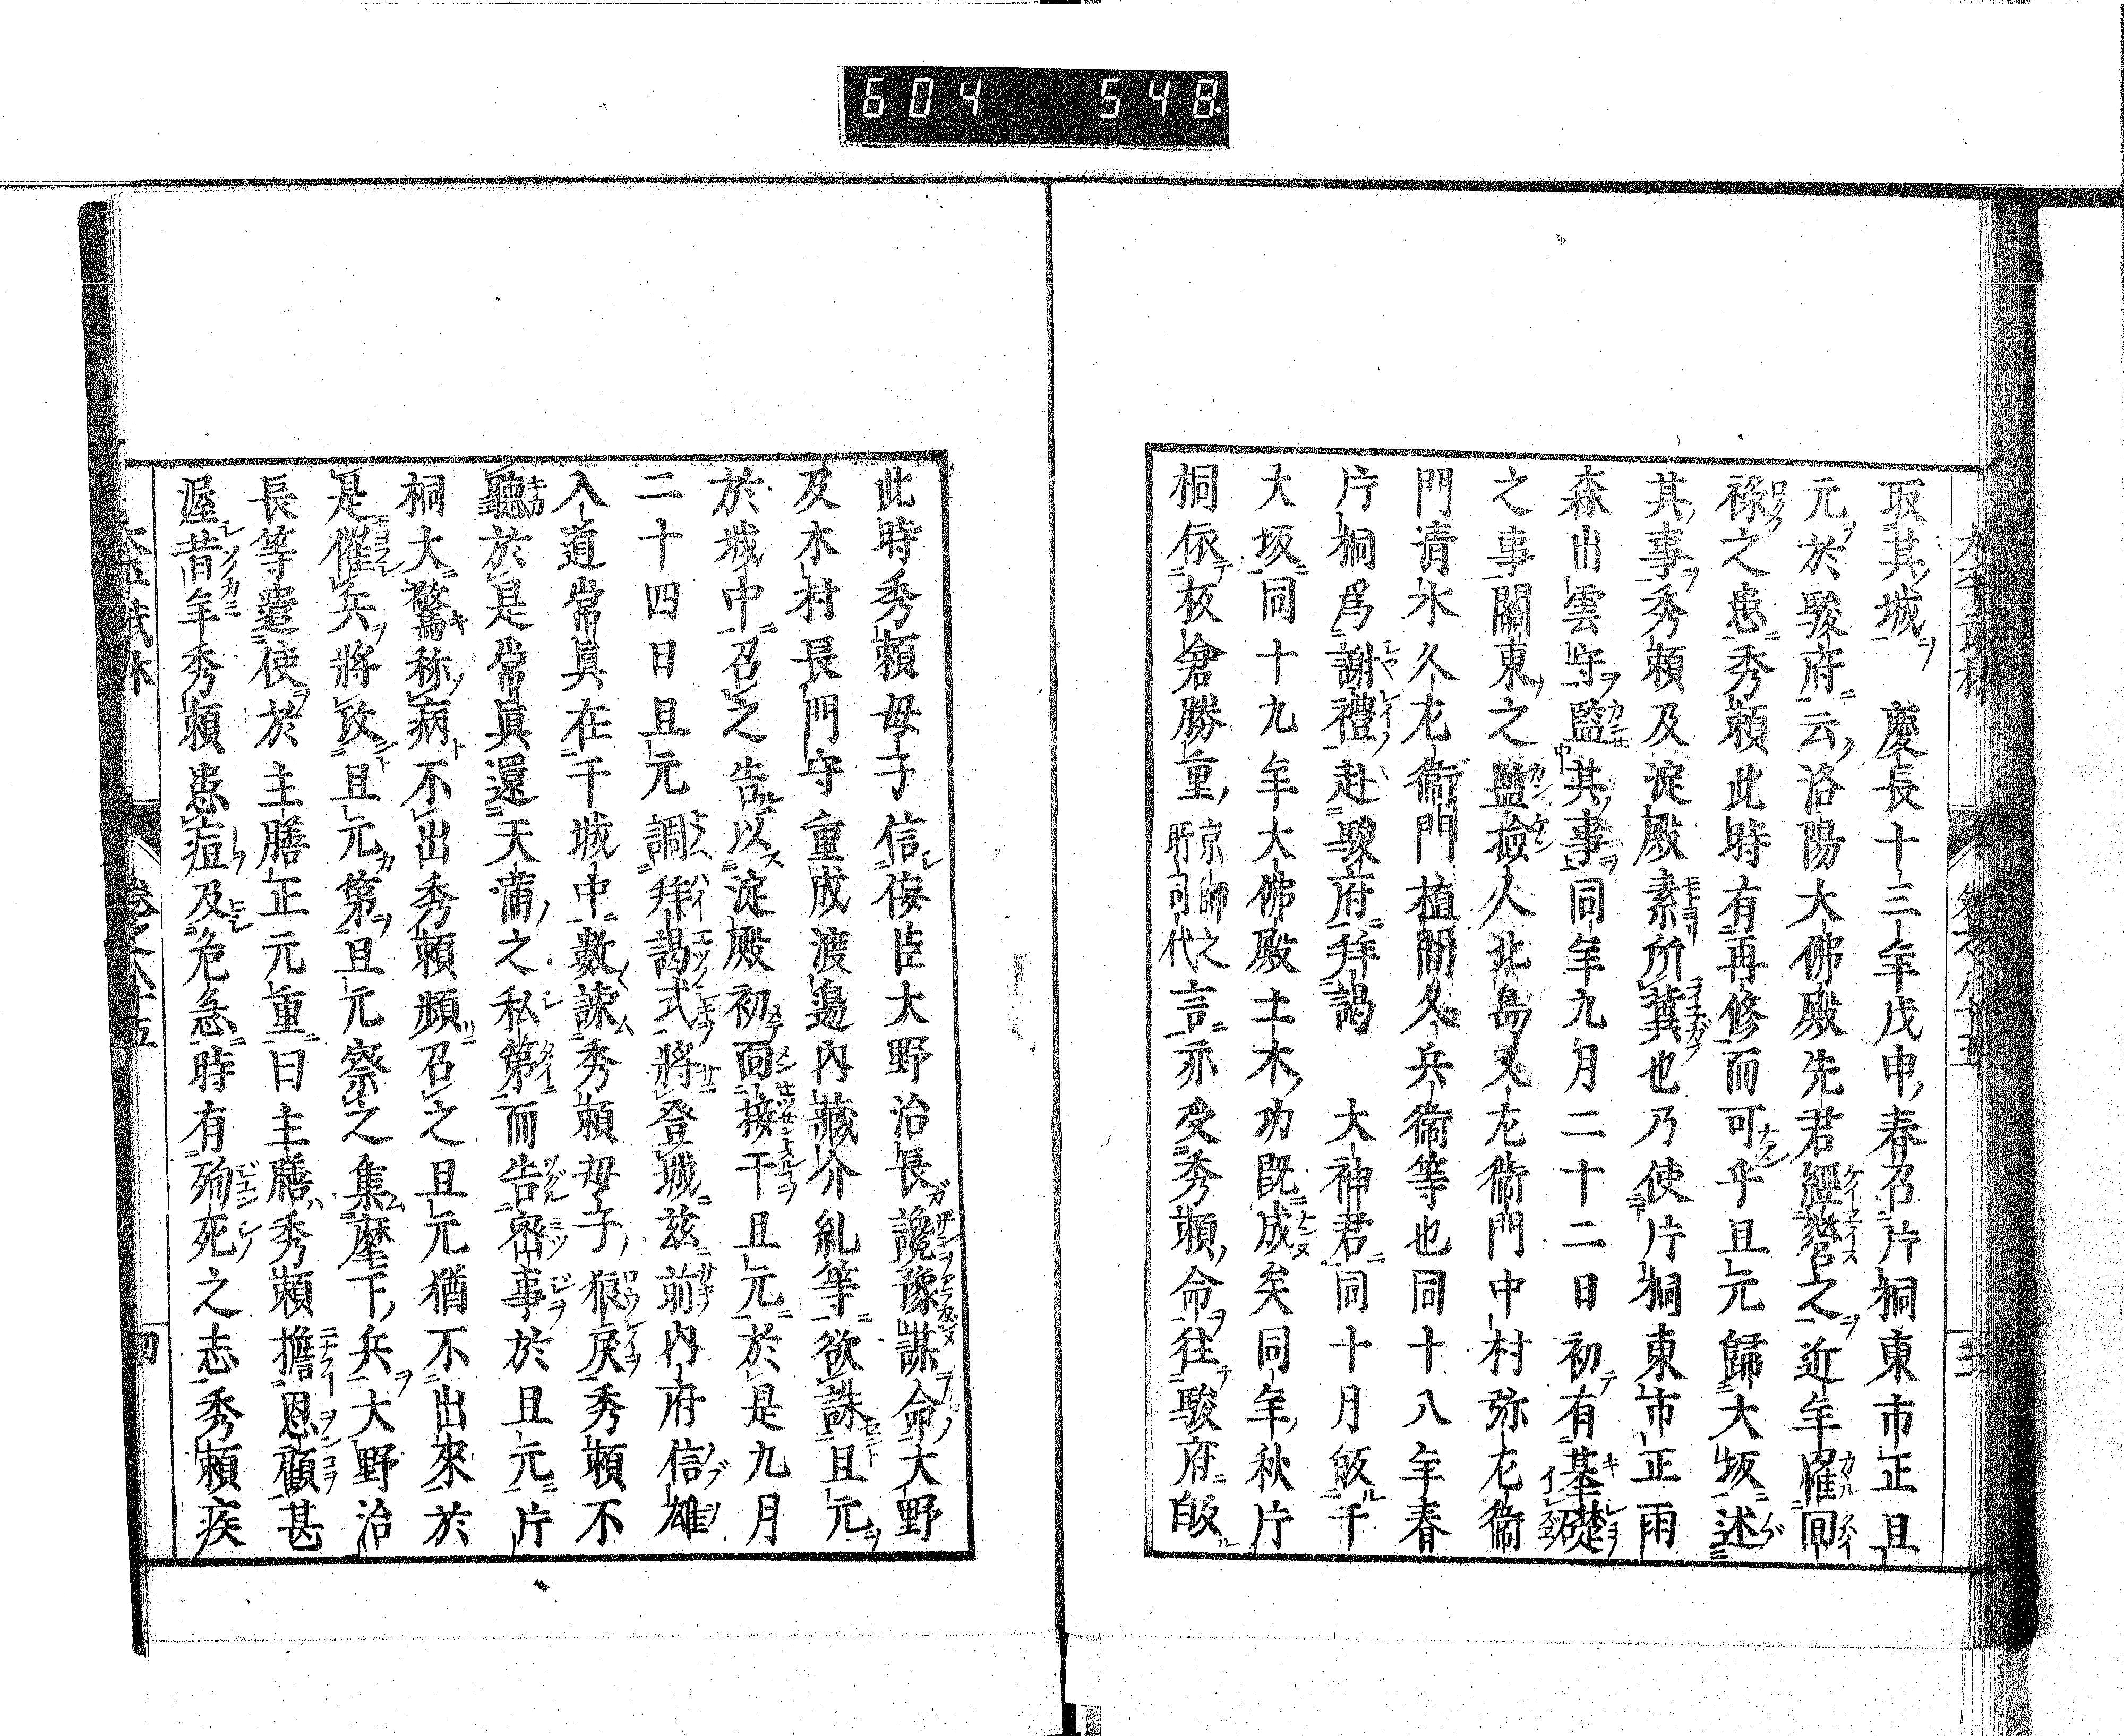 604 548
取其城 慶長十三年戊申春召片桐東市正且
元於駿府云洛陽大佛殿先君經營之近年罹囬
祿之患秀頼此時有再修而可乎且元歸大坂述
其事秀頼及淀殿素所冀也乃使片桐東市正雨
森出雲守監其事同年九月二十二日初有基礎
之事關東之監撿人北島又左衞門中村弥左衞
門清水久左衞門植間久兵衞等也同十八年春
片桐爲謝禮赴駿府拜謁 大神君同十月皈于
大坂同十九年大佛殿土木功既成矣同年秋片
桐依板倉勝重京師之所司代言亦受秀頼命往駿府皈
此時秀頼母子信侫臣大野治長讒豫謀命大野
及木村長門守重成渡邊内藏介糺等欲誅且元
於城中召之告以淀殿初面接于且元於是九月
二十四日且元調拜謁式將登城茲前内府信雄
入道常眞在于城中數諫秀頼母子狼戻秀頼不
聽於是常眞還天滿之私第而告密事於且元片
桐大驚称病不出秀頼頻召之且元猶不出來於
是催兵將攻且元第且元察之集麾下兵大野治
長等遣使於主膳正元重曰主膳秀頼擔恩顧甚
渥昔年秀頼患痘及危急時有殉死之志秀頼疾